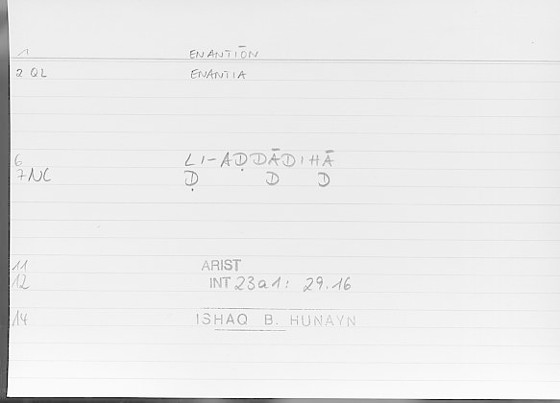 1 ENANTIŌN
2 QL ENANTIA
6 LI-AḌDĀDIHĀ
7NC Ḍ D D
11 ARIST
12 INT 23a1: 29.16
14 ISHAQ B. HUNAYN